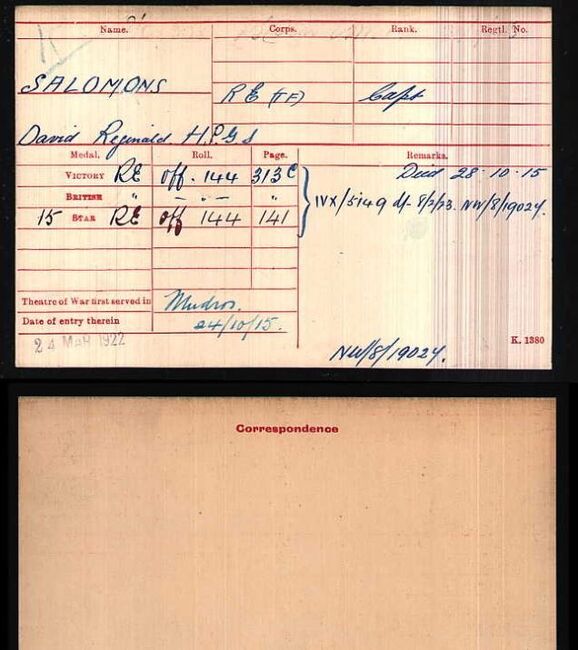 Name. Corps. Rank. Regtl. No.
SALOMONS R E (TF) Capt
David Reginald H.P.G.S
Medal. Roll. Page. Remarks.
VICTORY RE off. 144 313C Died 28·10·15
BRITISH " - " - "
15 STAR RE off 144 141 IVX/5149 df 8/2/23. NW/8/19024.
Theatre of War first served in Mudros.
Date of entry therein 24/10/15.
24 MAR 1922
K. 1380
NW/8/19024.
Correspondence